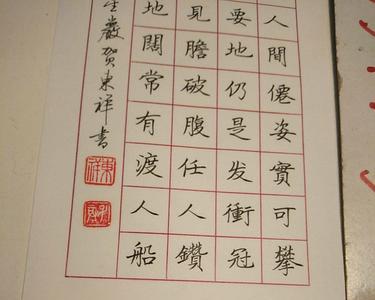 人間僊姿實可攀
要地仍是发衝冠
見膽破腹任人鑽
地闊常有渡人船
生嚴賀東祥書